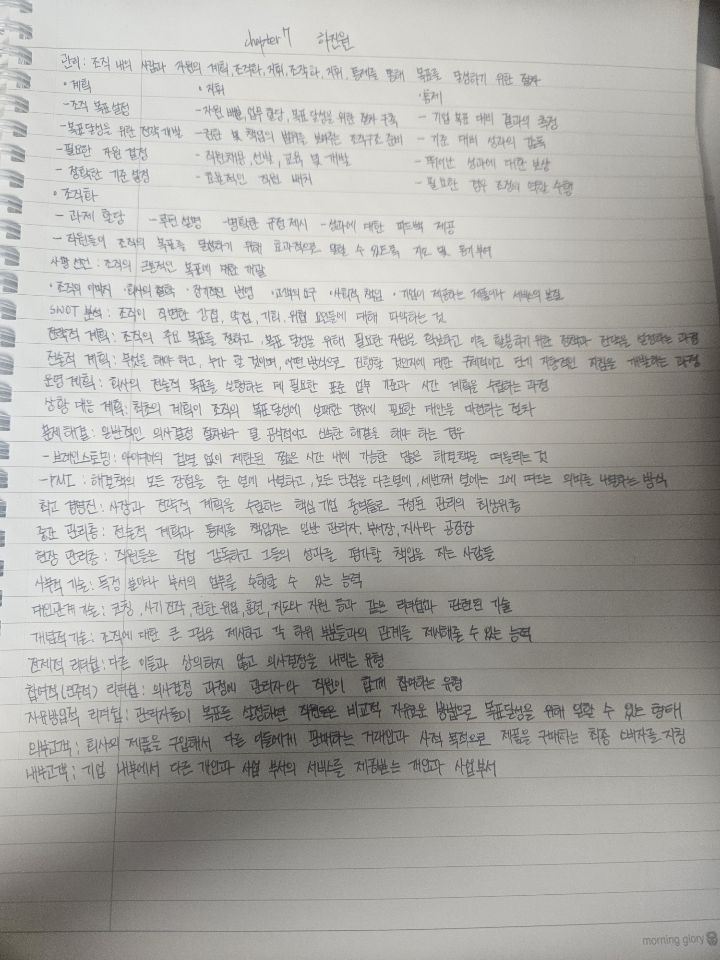 chapter 7 하진원
관리 : 조직 내의 사람과 자원의 계획, 조직화, 지휘, 조직화, 지휘, 통제를 통해 목표를 달성하기 위한 절차
· 계획 · 지휘 · 통제
- 조직 목표 설정 - 자원 배분, 업무 할당, 목표 달성을 위한 절차 구축 - 기업 목표 대비 결과의 측정
- 목표달성을 위한 전략 개발 - 권한 및 책임의 범위를 보여주는 조직구조 준비 - 기준 대비 성과의 감독
- 필요한 자원 결정 - 직원채용, 선발, 교육 및 개발 - 뛰어난 성과에 대한 보상
- 정확한 기준 설정 - 효율적인 직원 배치 - 필요한 경우 조정의 역할 수행
· 조직화
- 과제 할당 - 루틴 설명 - 명확한 규정 제시 - 성과에 대한 피드백 제공
- 직원들이 조직의 목표를 달성하기 위해 효과적으로 일할 수 있도록 지도 및 동기부여
사명 선언 : 조직의 근본적인 목표에 대한 개괄
· 조직의 이미지 · 회사의 철학 · 장기적인 번영 · 고객의 요구 · 사회적 책임 · 기업이 제공하는 제품이나 서비스의 본질
SWOT 분석 : 조직이 직면한 강점, 약점, 기회, 위협 요인들에 대해 파악하는 것
전략적 계획 : 조직의 주요 목표를 정하고, 목표 달성을 위해 필요한 자원을 확보하고 이를 활용하기 위한 정책과 전략을 설정하는 과정
전술적 계획 : 무엇을 해야 하고, 누가 할 것이며, 어떤 방식으로 진행할 것인지에 대한 구체적이고 단기 지향적인 지침을 개발하는 과정
운영 계획 : 회사의 전술적 목표를 실행하는 데 필요한 표준 업무 기준과 시간 계획을 수립하는 과정
상황 대응 계획 : 최초의 계획이 조직의 목표 달성에 실패한 경우에 필요한 대안을 마련하는 절차
문제 해결 : 일반적인 의사결정 절차보다 덜 공식적이고 신속한 해결을 해야 하는 경우
- 브레인스토밍 : 아이디어의 검열 없이 제한된 짧은 시간 내에 가능한 많은 해결책을 떠올리는 것
- PMI : 해결책의 모든 장점을 한 열에 나열하고, 모든 단점을 다른열에, 세번째 열에는 그에 따르는 의미를 나열하는 방식
최고 경영진 : 사장과 전략적 계획을 수립하는 핵심 기업 중역들로 구성된 관리의 최상위층
중간 관리층 : 전술적 계획과 통제를 책임지는 일반 관리자, 부서장, 지사와 공장장
현장 관리층 : 직원들은 직접 감독하고 그들의 성과를 평가할 책임을 지는 사람들
사무적 기술 : 특정 분야나 부서의 업무를 수행할 수 있는 능력
대인관계 기술 : 코칭, 사기진작, 권한 위임, 훈련, 지도와 지원 등과 같은 리더십과 관련된 기술
개념적 기술 : 조직에 대한 큰 그림을 제시하고 각 하위 부분들과의 관계를 제시해줄 수 있는 능력
전제적 리더십 : 다른 이들과 상의하지 않고 의사결정을 내리는 유형
참여적(민주적) 리더십 : 의사결정 과정에 관리자와 직원이 함께 참여하는 유형
자유방임적 리더십 : 관리자들이 목표를 설정하면 직원들은 비교적 자유로운 방법으로 목표달성을 위해 일할 수 있는 형태
외부고객 ; 회사의 제품을 구입해서 다른 이들에게 판매하는 거래인과 사적 목적으로 제품을 구매하는 최종 소비자를 지칭
내부고객 ; 기업 내부에서 다른 개인과 사업 부서의 서비스를 제공받는 개인과 사업부서
morning glory